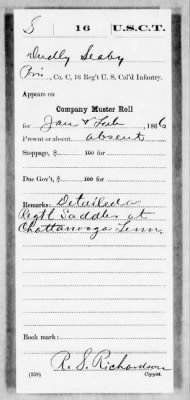 S | 16 | U.S.C.T.
Dudly Seaby
Pri, Co. C, 16 Reg't U. S. Col'd Infantry.
Appears on
Company Muster Roll
for Jan & Feb, 1866
Present or absent absent
Stoppage, $ 100 for
Due Gov't, $ 100 for
Remarks: Detailed a
Regtl Saddler at
Chattanooga Tenn.
Book mark:
R. S. Richardson
(358) Copyist.